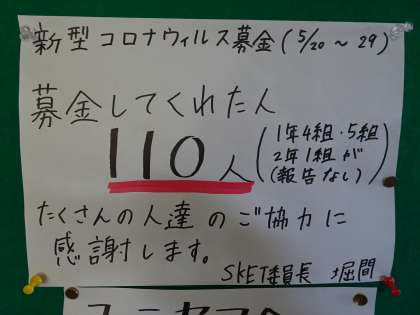 新型コロナウィルス募金(5/20～29)
募金してくれた人
110人(1年4組・5組
2年1組が
報告なし)
たくさんの人達のご協力に
感謝します。
SKET委員長 堀間
ユニセフへ